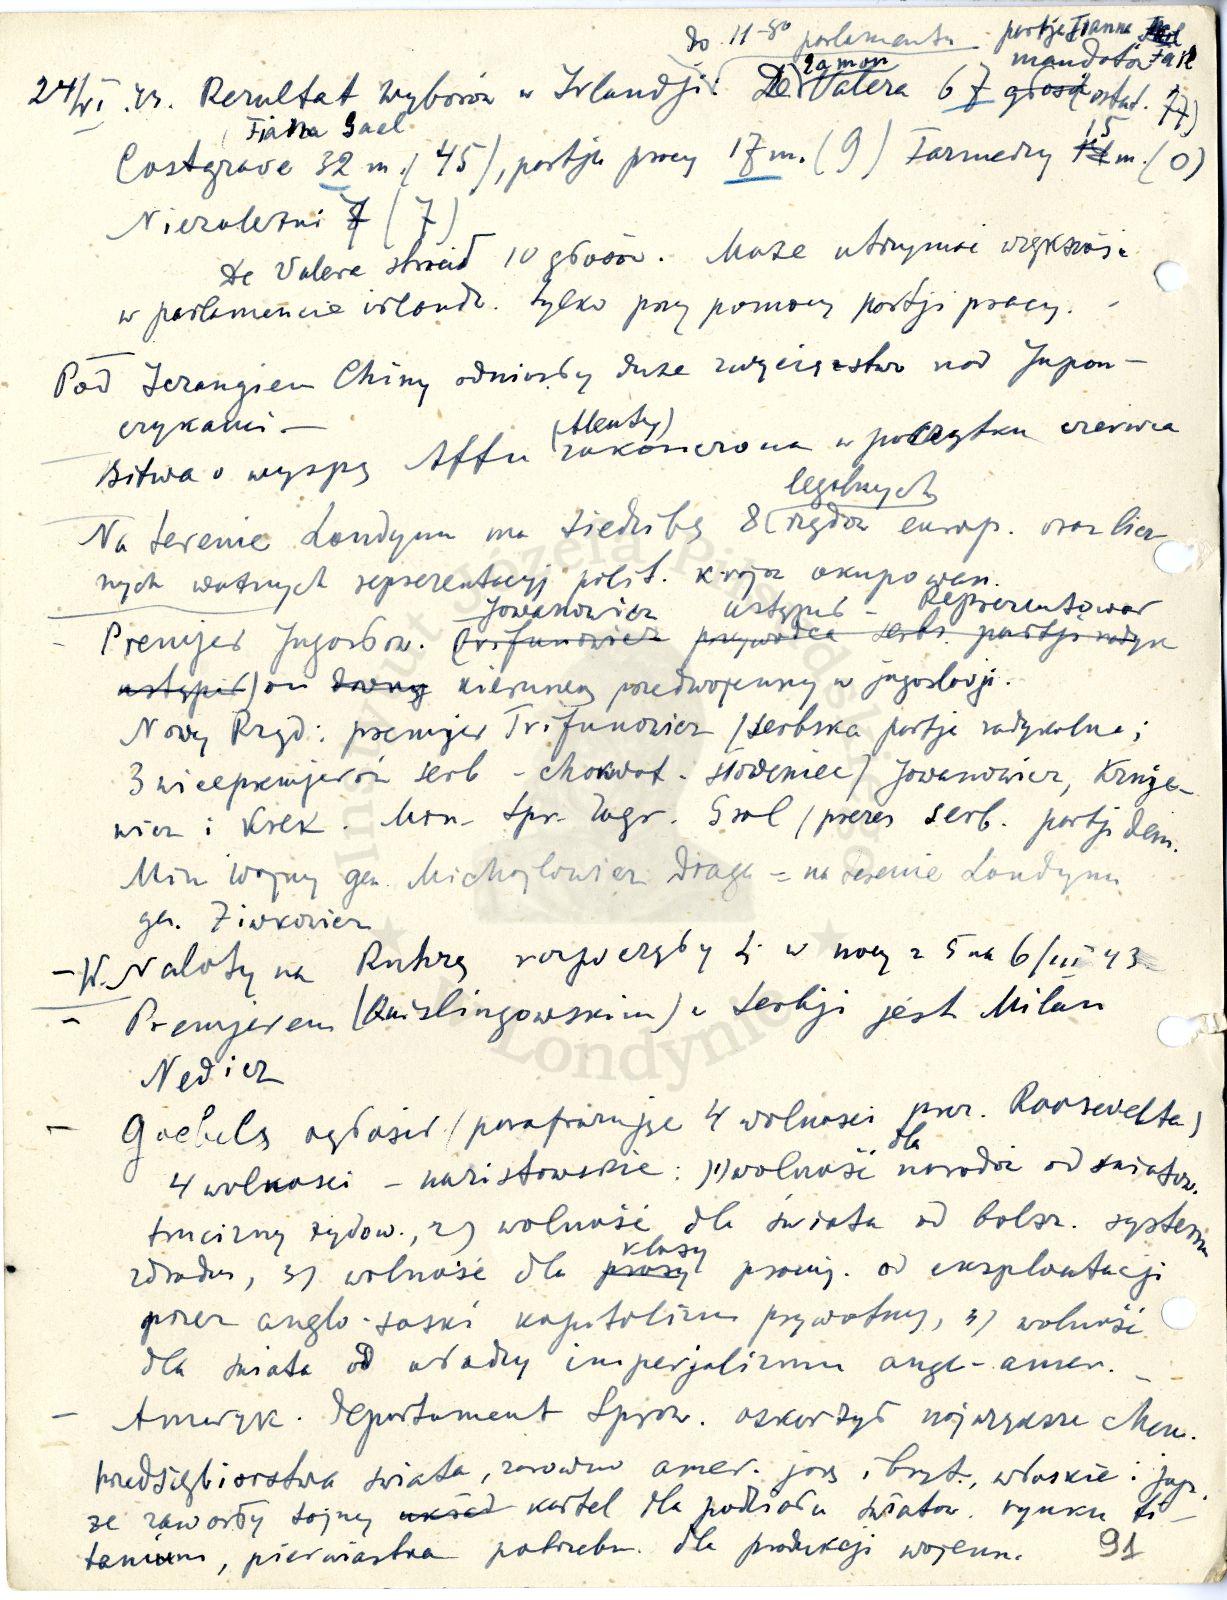 do 11-go parlamentu partja Fianna Fail
24/VI.43. Rezultat wyborów w Irlandji: De Valera 67 głosó mandatów (ostat. 77)
Eamon
Fianna Gael
Costgrave 32 m. (45), partja pracy 17 m. (9) Farmerzy 15 m. (0)
Niezależni 7 (7)
De Valera stracił 10 głosów. Może utrzymać większość
w parlamencie irlandz. tylko przy pomocy partji pracy. -
Pod Iczangiem Chiny odniosły duże zwycięstwo nad Japoń-
czykami -
Bitwa o wyspę Attu (Aleuty) zakończona w początku czerwca
Na terenie Londynu ma siedzibę 8 legalnych rządów europ. oraz licz
nych ważnych reprezentacyj polit. krajów okupowan.
- Premjer Jugosłow. Jowanowicz ustąpił - Reprezentował
(Trifunowicz przywódca serbs. partji radyk
ustąpił) on dawny kierunek przedwojenny w jugosławji.
Nowy Rząd: premjer Trifunowicz (serbska partja radykalna;
3 wicepremjerów serb - chorwat - słoweniec) Jowanowicz, Krnje-
wicz i Krek. Min. Spr. Zagr. Grol (prezes serb. partji dem.
Min Wojny gen. Michajłowicz Draga = na terenie Londynu
gen. Ziwkowicz
- W. Naloty na Ruhrę rozpoczęły się w nocy z 5 na 6/III 43
- Premjerem (Quislingowskim) w Serbji jest Milan
Nedicz
- Goebels ogłosił (parafrazując 4 wolności prez. Roosevelta)
4 wolności - nazistowskie: 1) wolność dla narodów od światow.
trucizny żydow., 2) wolność dla świata od bolsz. systemu
zdrady, 3) wolność dla prasy klasy pracuj. od eksploatacji
przez anglo-saski kapitalizm prywatny, 4) wolność
dla świata od władzy imperjalizmu angl-amer.
- Ameryk. Departament Spraw. oskarżył największe chem.
przedsiębiorstwa świata, zarówno amer. jak i bryt., włoskie i jap.
że zawarły tajny układ kartel dla podziału światow. rynku ti-
tanium, pierwiastka potrzebn. dla produkcji wojenn. 91
Instytut Józefa Piłsudskiego w Londynie